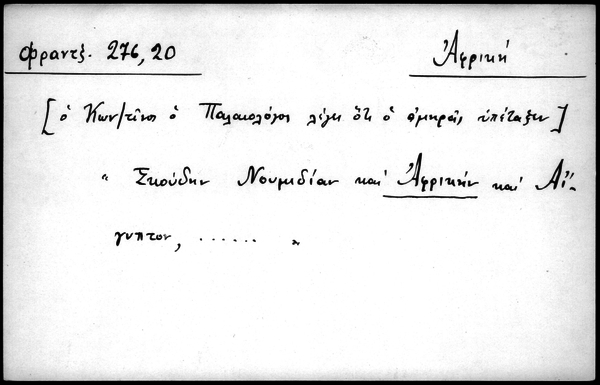 Φραντζ. 276, 20
Ἀφρική
[ὁ Κων/τῖνος ὁ Παλαιολόγος λέγει ὅτι ὁ ἀμηρᾶς ὑπέταξεν]
" Σκούδην Νουμιδίαν καὶ Ἀφρικήν καὶ Αἴ-
γυπτον, ...... "